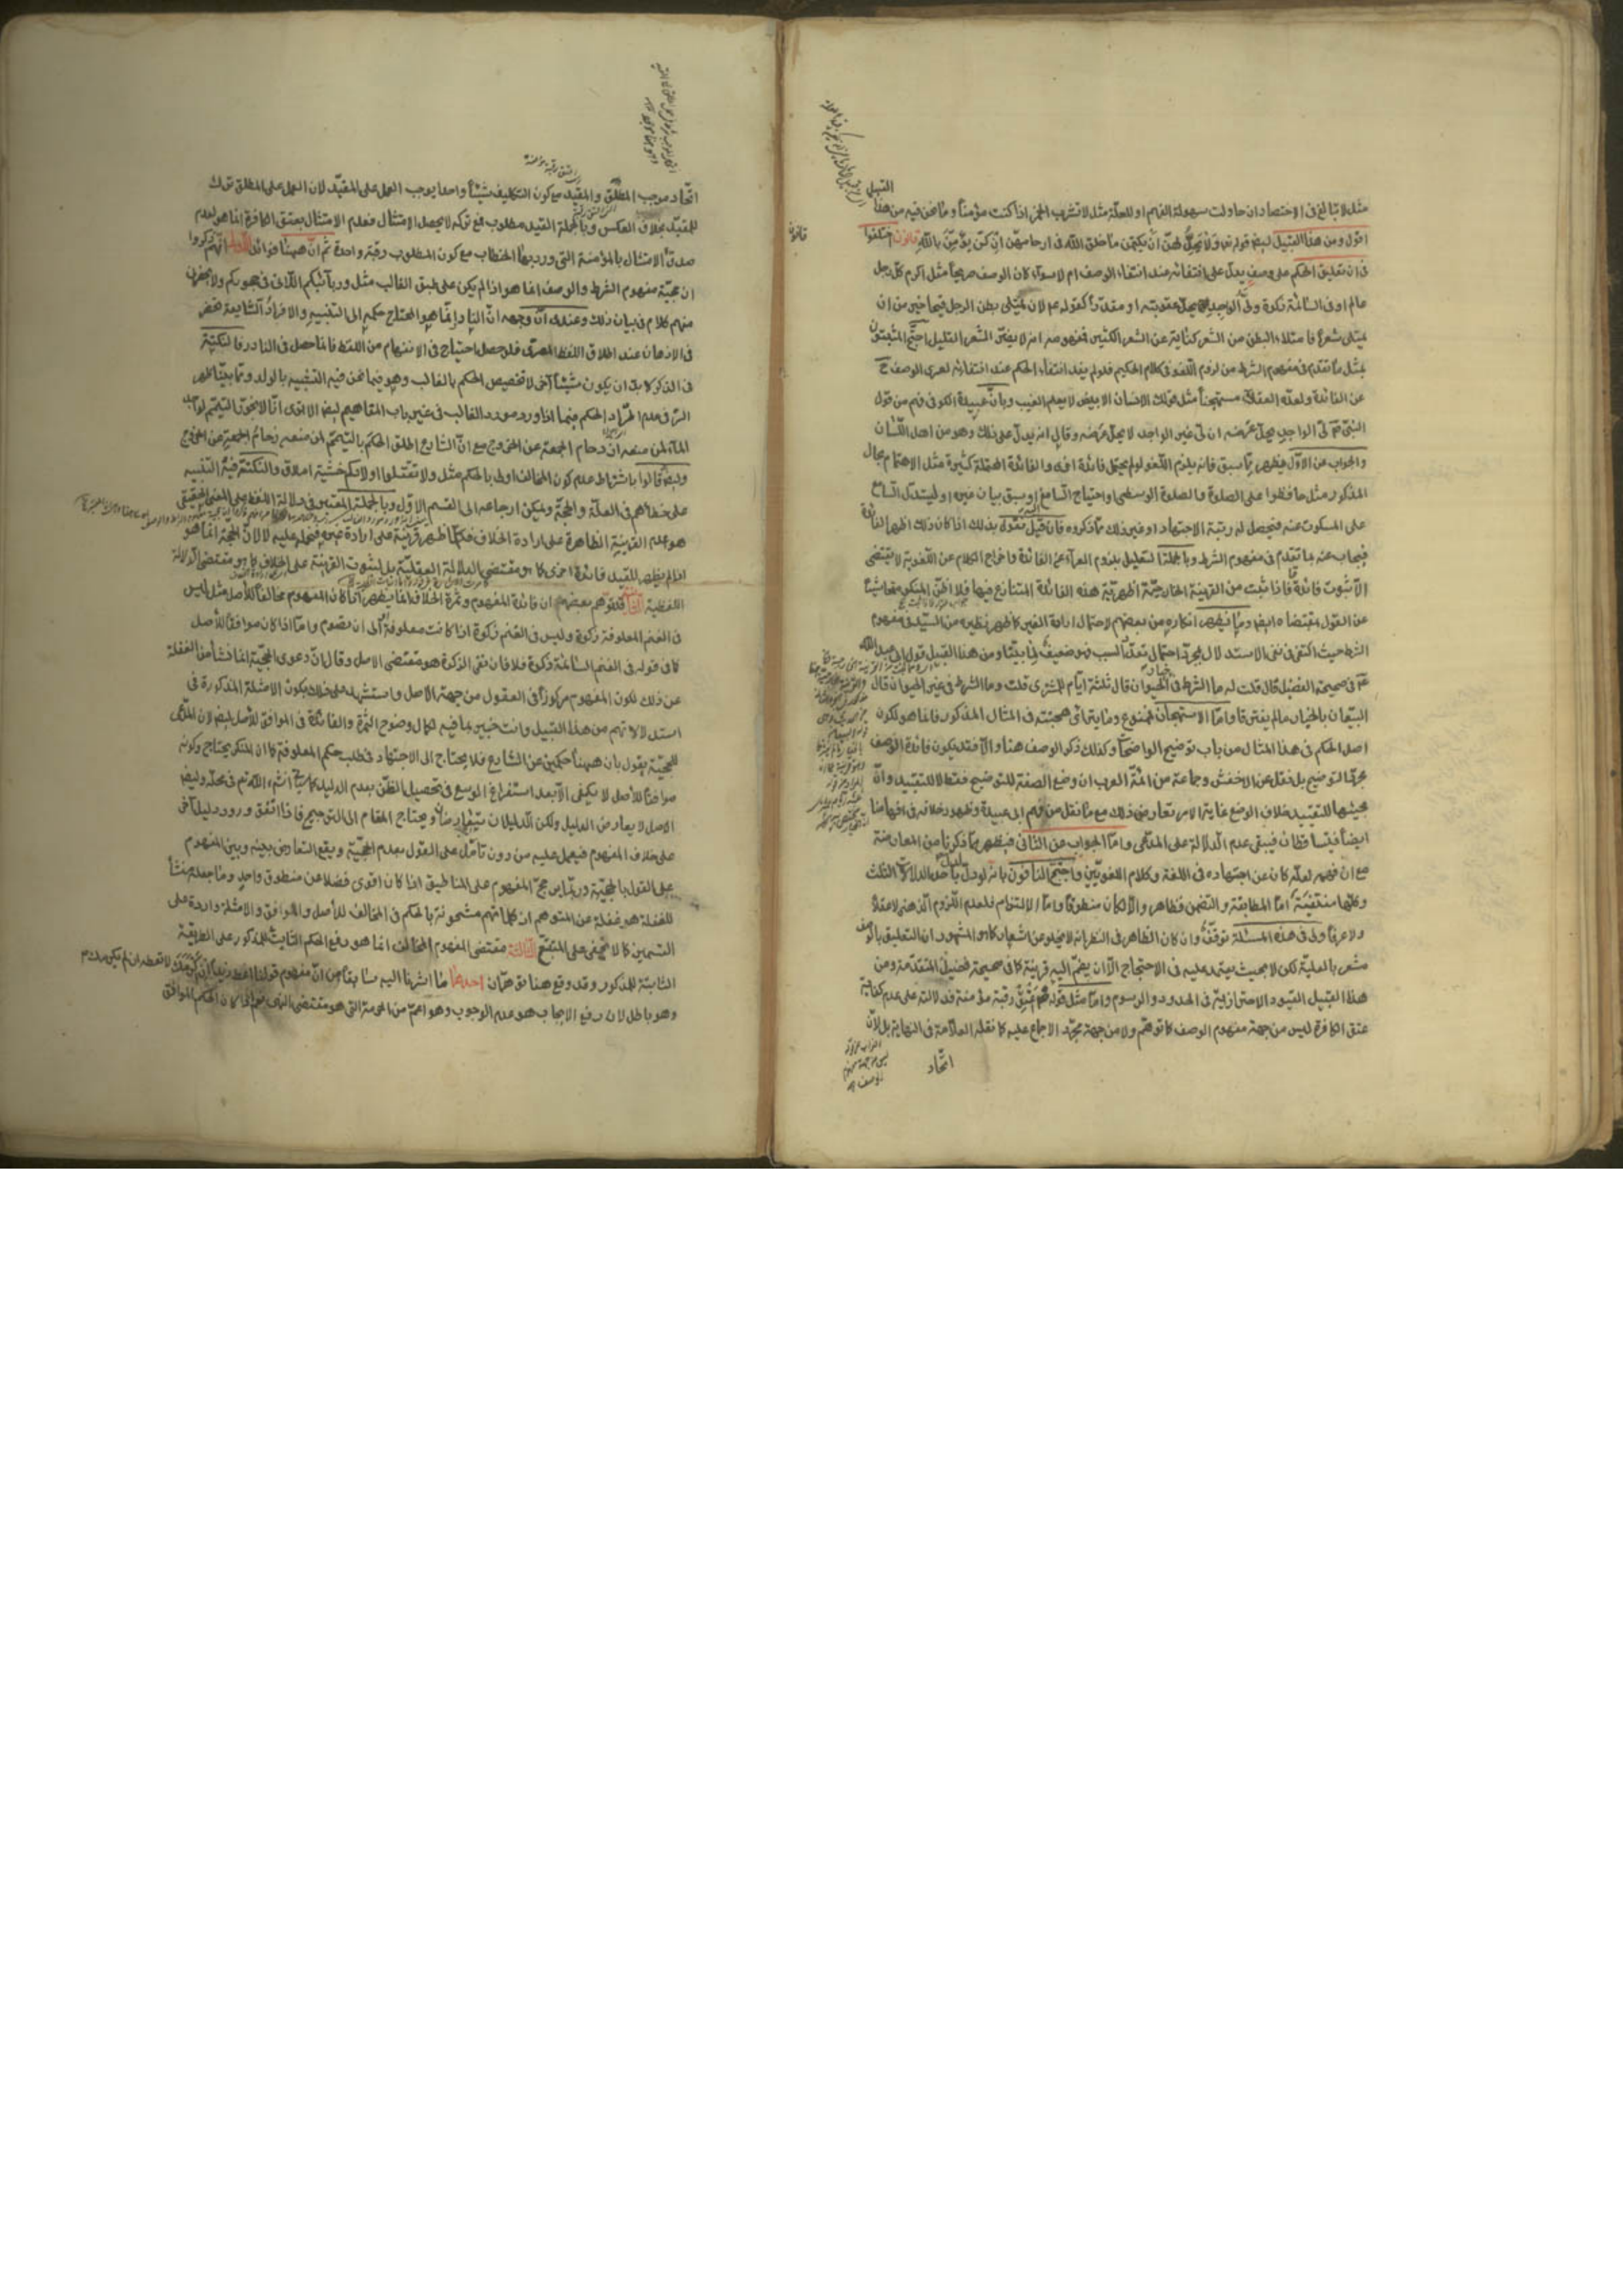 مثل لا تبالغ فى الاختصار ان حاولت سهولة الفهم او للعلّة مثل لا تشرب الخمر اذا كنت مؤمناً وما نحن فيه من هذا
القبيل
اقول ومن هذا القبيل ايضا قوله تعا ولا يحلّ لهنّ ان يكتمن ما خلق الله فى ارحامهنّ ان كنّ يؤمنّ بالله قانون اختلفوا
قانون
فى ان تعليق الحكم على وصف يدلّ على انتفائه عند انتفاء الوصف ام لا سواء كان الوصف صريحاً مثل اكرم كلّ رجل
عالم او فى السائمة زكوة ولىّ الواجد يحلّ عقوبته او مقدّراً كقوله ع لان يمتلى بطن الرجل قيحا خير من ان
يمتلى شعراً فامتلاء البطن من الشعر كناية عن الشعر الكثير فمفهومه انه لا يضرّ الشعر القليل احتجّ المثبتون
بمثل ما تقدم فى مفهوم الشرط من لزوم اللغو فى كلام الحكيم فلو لم يفد انتفاء الحكم عند انتفائه لعرى الوصف ح
عن الفائدة ولعدّه العقلاء مستهجناً مثل قولك الانسان الابيض لا يعلم الغيب وبانّ ابا عبيدة الكوفى فهم من قول
النبى ص لىّ الواجد يحلّ عرضه ان لىّ غير الواجد لا يحلّ عرضه وقال انه يدلّ على ذلك وهو من اهل اللّسان
والجواب عن الاوّل فيظهر ممّا سبق فانه يلزم اللغو لو لم يحتمل فائدة اخرى والفائدة المحتملة كثيرة مثل الاهتمام بحال
المذكور مثل حافظوا على الصلوة والصلوة الوسطى واحتياج السامع اليه او سبق بيان غيره او ليستدلّ السامع
على المسكوت عنه فيحصل له رتبة الاجتهاد او غير ذلك ممّا ذكروه فان قيل نقول بذلك اذا كان ذلك اظهر الفائدة
فيجاب عنه بما تقدم فى مفهوم الشرط وبالجملة التعليل بلزوم العراء عن الفائدة واخراج الكلام عن اللغوية لا يقتضى
الاّ ثبوت فائدة ما فاذا ثبت من القرينة الخارجيّة اظهريّة هذه الفائدة المتنازع فيها فلا اظنّ المنكر متحاشياً
عن القول بمقتضاه ايضا وما يظهر انكاره من بعضهم لاحتمال ارادة الغير كما ظهر نظيره من السيّد فى مفهوم
الشرط حيث اكتفى فى نفى الاستدلال بمجرّد احتمال تعدّد السبب فهو ضعيف لما بيّنّا ومن هذا القبيل قول ابى عبد الله
ع فى صحيحة الفضيل قال قلت له ما الشرط فى الحيوان قال ثلثة ايّام للمشترى قلت وما الشرط فى غير الحيوان قال
البيّعان بالخيار ما لم يفترقا وامّا الاستهجان فممنوع وما يترائى هجنته فى المثال المذكور فانما هو لكون
اصل الحكم فى هذا المثال من باب توضيح الواضحات وكذلك ذكر الوصف هنا والاّ فقد يكون فائدة الوصف
مجرّد التوضيح بل نقل عن الاخفش وجماعة من ائمّة العرب ان وضع الصفة للتوضيح فقط لا للتقييد وانّ
مجيئها للتقييد خلاف الوضع غاية الامر تعارض ذلك مع ما نقل من فهم ابى عبيدة وظهور خلافه فى افهامنا
ايضاً فيتساقطان فيبقى عدم الدلالة على المدّعى وامّا الجواب عن الثانى فيظهر ممّا ذكرنا من المعارضة
مع ان فهمه لعلّه كان عن اجتهاده فى اللغة وكلام اللغويين واحتجّ النافون بانه لو دلّ لدلّ باحدى الدلالات الثلث
وكلّها منتفيّة امّا المطابقة والتضمن فظاهر والاّ لكان منطوقاً وامّا الالتزام فلعدم اللّزوم الذهنى لا عقلا
ولا عرفاً ولى فى هذه المسئلة توقف وان كان الظاهر فى النظر انه لا يخلو عن اشعار كما هو المشهور ان التعليق بالوصف
مشعر بالعليّة لكن لا بحيث يعتمد عليه فى الاحتجاج الاّ ان يضمّ اليه قرينة كما فى صحيحة فضيل المتقدّمة ومن
هذا القبيل القيود الاحترازيّة فى الحدود والرسوم وامّا مثل قوله تعا اعتق رقبة مؤمنة فدلالته على عدم كفاية
عتق الكافرة ليس من جهة مفهوم الوصف كما توهّم ولا من جهة مجرّد الاجماع عليه كما نقله العلاّمة فى النهاية بل لانّ
اتّحاد
اتّحاد موجب المطلق والمقيد مع كون التكليف شيئاً واحداً يوجب العمل على المقيّد لان العمل على المطلق ترك
للمقيّد بخلاف العكس وبالجملة القيد مطلوب فمع تركه لا يحصل الامتثال فعدم الامتثال بعتق الكافرة انما هو لعدم
صدق الامتثال بالمؤمنة التى ورد بها الخطاب مع كون المطلوب رقبة واحدة ثمّ انّ ههنا فوائد الاولى انّهم ذكروا
ان حجيّة مفهوم الشرط والوصف انما هو اذا لم يكن على طبق الغالب مثل وربائبكم اللاتى فى حجوركم ولا يحضرنى
منهم كلام فى بيان ذلك وعندى انّ وجهه انّ النادر انّما هو المحتاج حكمه الى التنبيه والافراد الشايعة تحضر
فى الاذهان عند اطلاق اللفظ المعرّى فلو حصل احتياج فى الانفهام من اللفظ فانما حصل فى النادر فالنكتة
فى الذكر لا بدّ ان يكون شيئاً آخر لا تخصيص الحكم بالغالب وهو فيما نحن فيه التشبيه بالولد وممّا بيّنّا ظهر
السرّ فى عدم اطّراد الحكم فيما اذا ورد مورد الغالب فى غير باب المفاهيم ايضا الا ترى انّا لا نجوّز التيمّم لواجد
الماء لمن منعه ازدحام الجمعة عن الخروج مع انّ الشارع اطلق الحكم بالتيمّم لمن منعه زحام الجمعة عن الخروج
وايضا قالوا باشتراط عدم كون المخالف اولى بالحكم مثل ولا تقتلوا اولادكم خشية املاق والنكتة فيه التنبيه
على خطائهم فى العلّة والحجّة ويمكن ارجاعه الى القسم الاوّل وبالجملة المعتبر فى دلالة اللفظ على المعنى الحقيقى
هو عدم القرينة الظاهرة على ارادة الخلاف فكلّما ظهر قرينة على ارادة غيره فنحمله عليه لا لانّ الحجّة انما هو
اذا لم يظهر للقيد فائدة اخرى كما هو مقتضى الدلالة العقليّة بل لثبوت القرينة على الخلاف كما هو مقتضى الدلالة
اللفظية الثانية قد توهّم بعضهم ان فائدة المفهوم وثمرة الخلاف انما يظهر اذا كان المفهوم مخالفاً للاصل مثل ليس
فى الغنم المعلوفة زكوة وليس فى الغنم زكوة اذا كانت معلوفة او الى ان يقسوم وامّا اذا كان موافقاً للاصل
كما فى قوله فى الغنم السائمة زكوة فلا فان نفى الزكوة هو مقتضى الاصل وقال انّ دعوى الحجّية انما نشأ من الغفلة
عن ذلك لكون المفهوم مركوزاً فى العقول من جهة الاصل واستشهد على ذلك بكون الامثلة المذكورة فى
استدلالاتهم من هذا القبيل وانت خبير بما فيه لكمال وضوح الثمرة والفائدة فى الموافق للاصل ايضا لان المدّعى
للحجيّة يقول بان ههنا حكمين من الشارع فلا يحتاج الى الاجتهاد فى طلب حكم المعلوفة كما ان المنكر يحتاج وكونه
موافقاً للاصل لا يكفى الاّ بعد استفراغ الوسع فى تحصيل الظنّ بعدم الدليل كما سيجئ انشاء الله تعا فى محلّه وايضا
الاصل لا يعارض الدليل ولكن الدليلان يتعارضان ويحتاج المقام الى الترجيح فاذا اتفق ورود دليل آخر
على خلاف المفهوم فيعمل عليه من دون تامّل على القول بعدم الحجيّة ويقع التعارض بينه وبين المفهوم
على القول بالحجيّة وربّما يرجّح المفهوم على المناطيق اذا كان اقوى فضلا عن منطوق واحد وما جعله منشأ
للغفلة هو غفلة عن المتوهم اذ كلماتهم مشحونة بالحكم فى المخالف للاصل والموافق والامثلة واردة على
القسمين كما لا يخفى على المتتبّع الثالثة مقتضى المفهوم المخالف انما هو رفع الحكم الثابت للمذكور على الطريقة
الثابتة للمذكور وقد وقع هنا توهّمان احدهما ما اشرنا اليه سابقا من انّ مفهوم قولنا اعط زيدا ان اكرمك لا تعطه ان لم يكرمك
وهو باطل لان رفع الايجاب هو عدم الوجوب وهو اعمّ من الحرمة التى هو مقتضى النهى